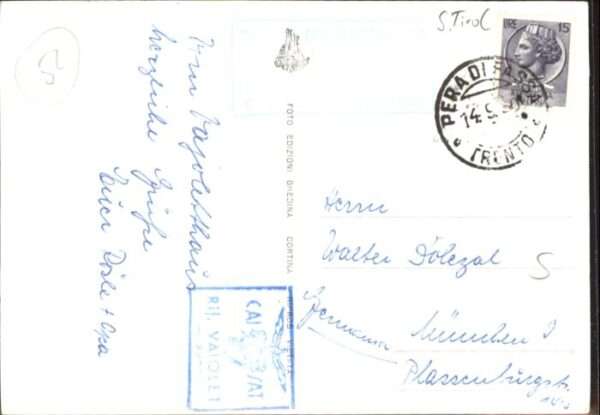 S. Tirol
LIRE 15
PERA DI FASSA
14.9.
TRENTO
Vom Vajoletthaus
herzliche Grüße
Euer Dole + Opa
FOTO EDIZIONI GHEDINA CORTINA
CAI SAT
RIF. VAIOLET
Herrn
Walter Dolezal
München 9
Germania
S
S